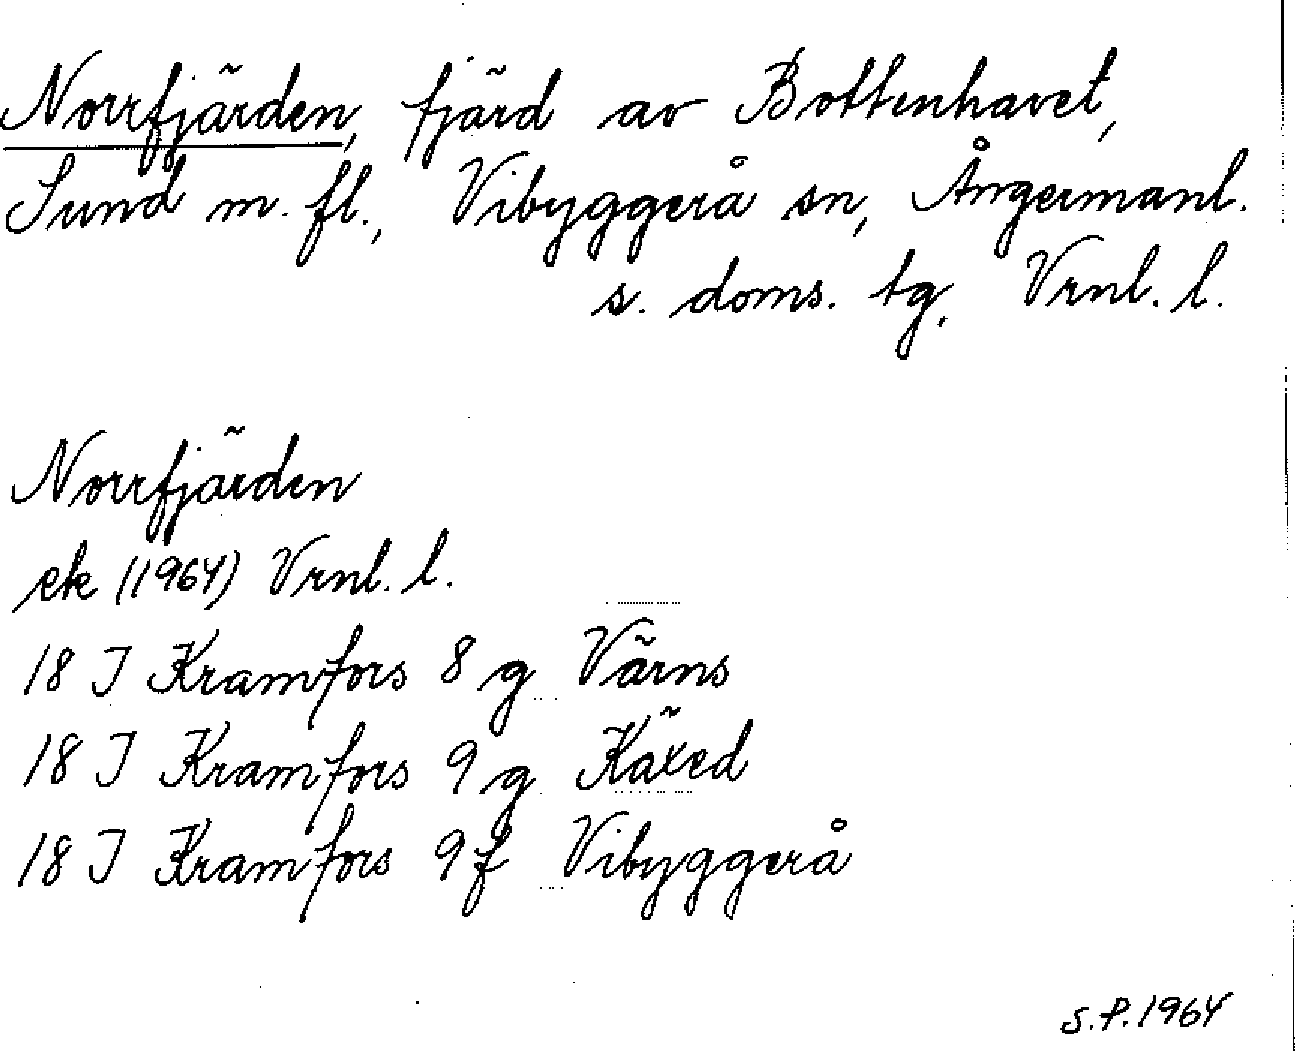 Norrfjärden, fjärd av Bottenhavet,
Sund m. fl., Vibyggerå sn, Ångermanl.
s. doms. tg. Vrnl. l.
Norrfjärden
ek (1964) Vrnl. l.
18 I Kramfors 8 g Värns
18 I Kramfors 9 g Käxed
18 I Kramfors 9 f Vibyggerå
S.P. 1964